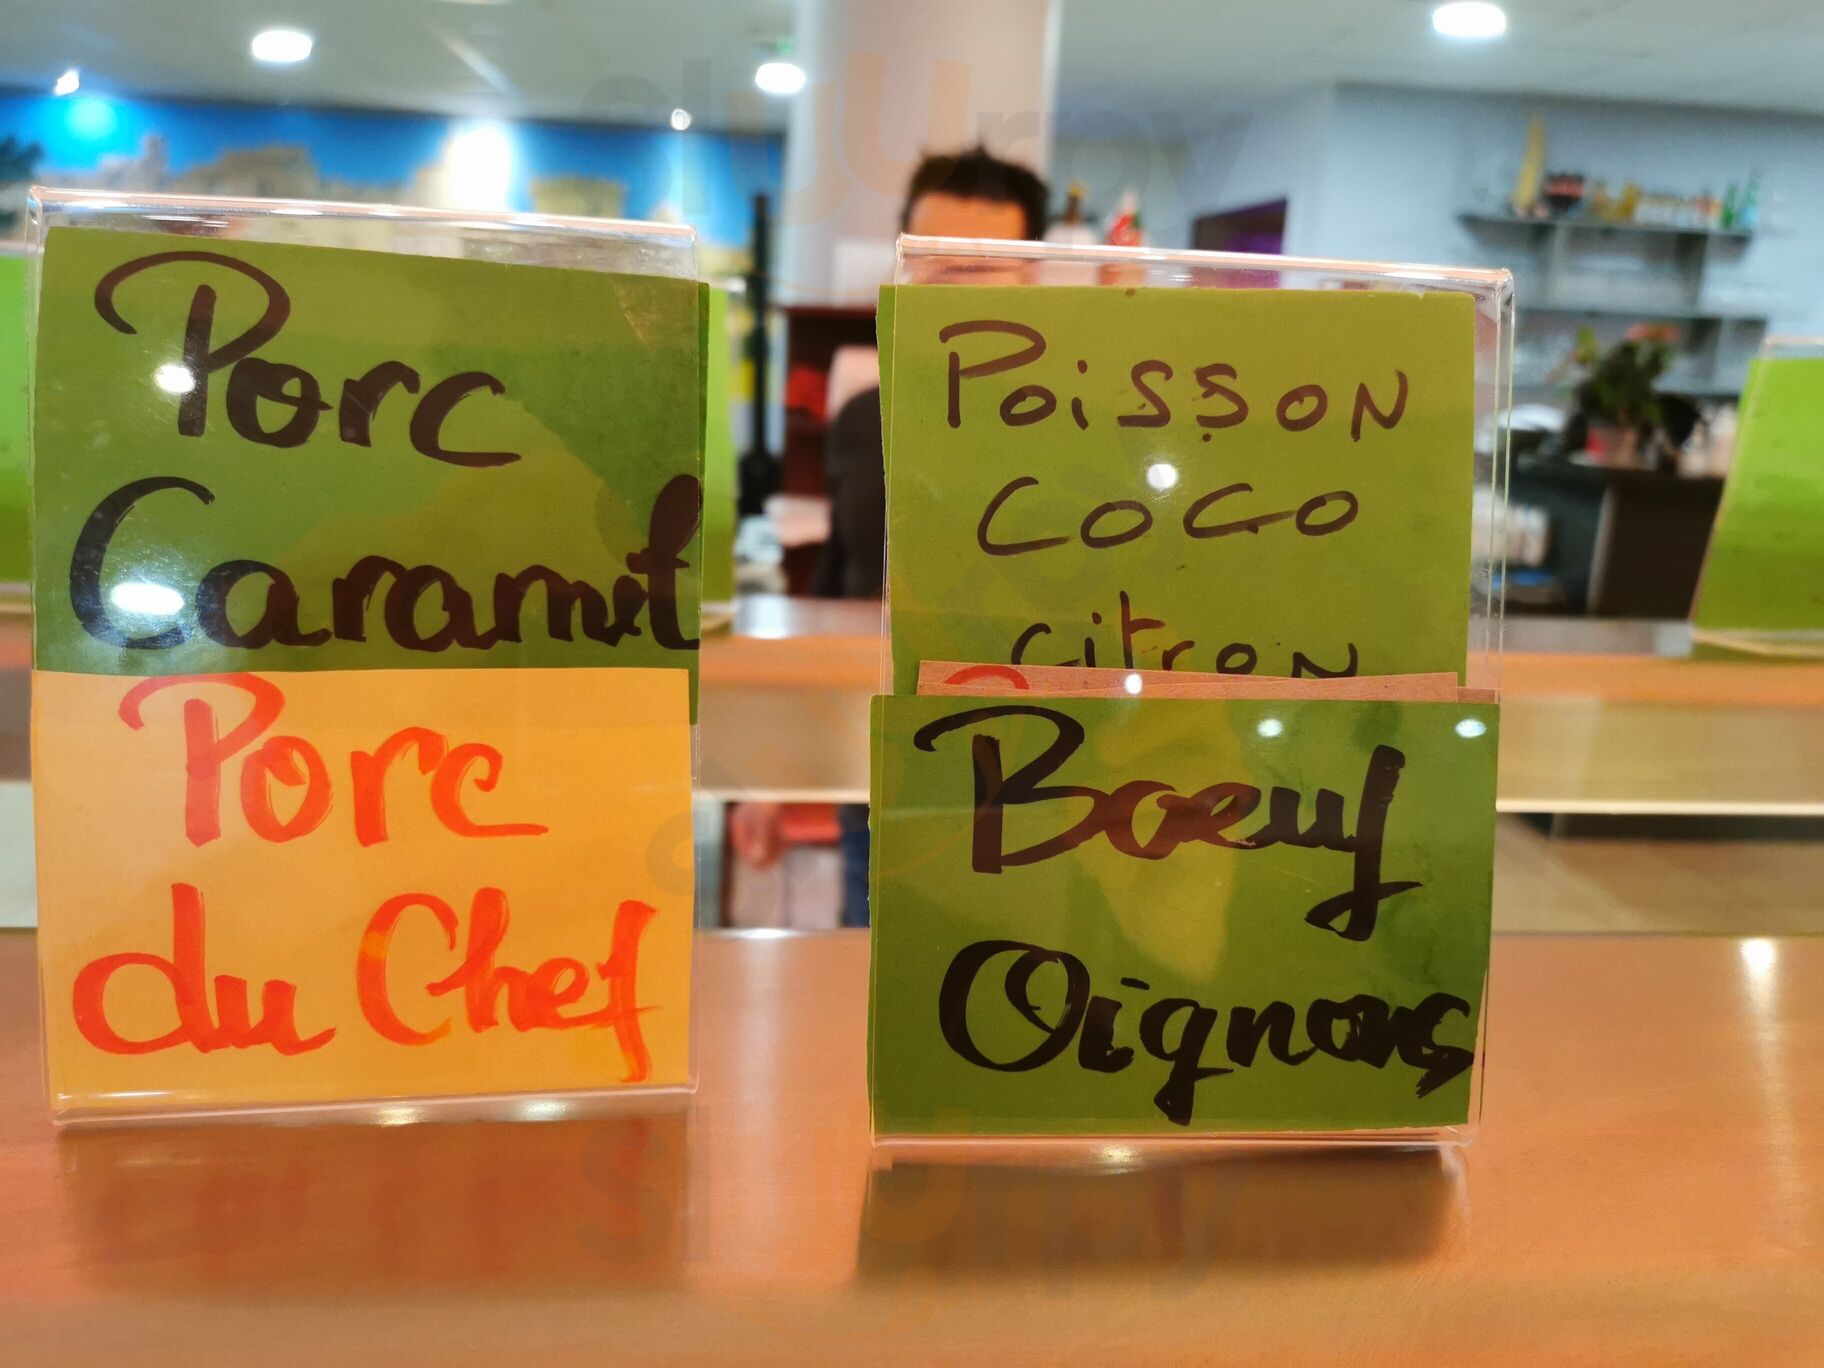 Porc
Caramel
Porc
du Chef
Poisson
coco
citron
Boeuf
Oignons
sluurpy
sluurpy